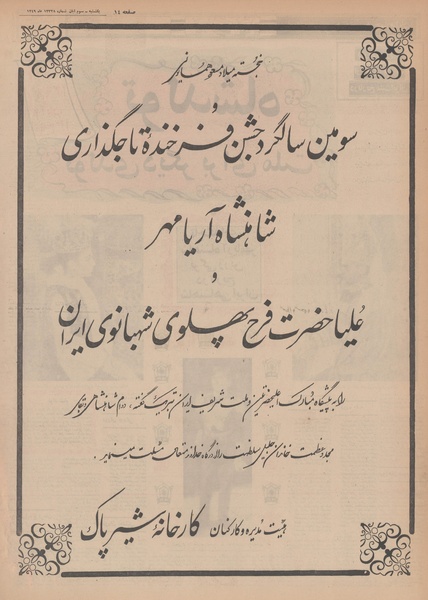 صفحه ۱۴
خجسته میلاد مسعود همایونی
و
سومین سالگرد جشن فرخندهٔ تاجگذاری
شاهنشاه آریامهر
و
علیاحضرت فرح پهلوی شهبانوی ایران
را به پیشگاه مبارک اعلیحضرتین و ملت شریف ایران تبریک گفته، دوام شاهنشاهی و بقای
مجد و عظمت خاندان جلیل سلطنت را از درگاه خداوند متعال مسئلت مینماید.
هیئت مدیره و کارکنان کارخانهٔ شیر پاک